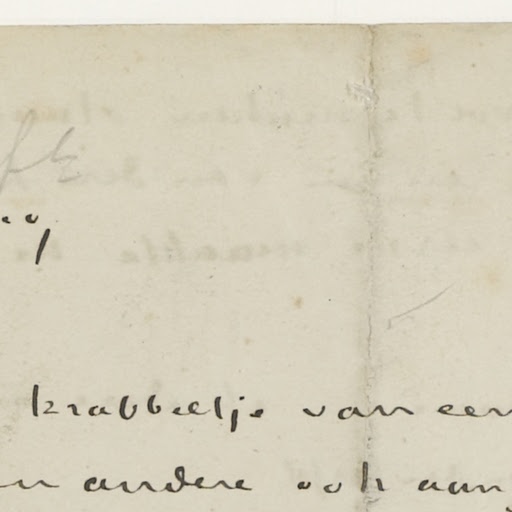 krabbeltje van een
en andere ook aan